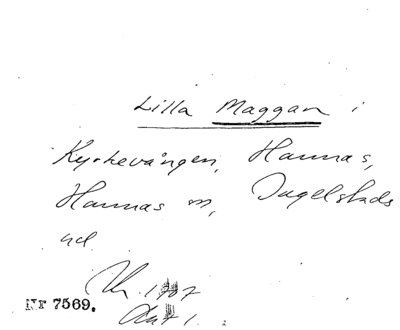 Lilla Maggan i
Kyrkevången, Hannas,
Hannas sn, Ingelstads
hd
1907
NF 7569.